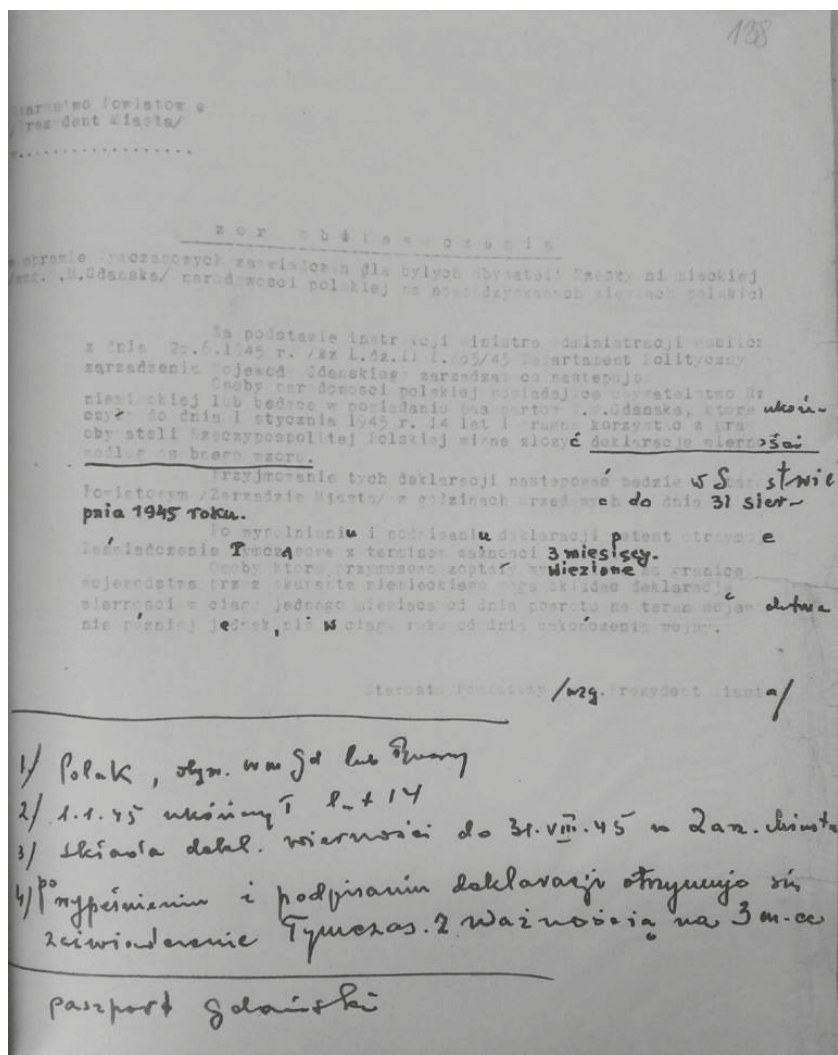 138
Starostwo Powiatowe
/Prezydent Miasta/
..................
Wzór obwieszczenia
zaświadczeń dla byłych obywateli Rzeszy niemieckiej
W.M.Gdańska/ narodowości polskiej na nowoodzyskanych ziemiach polskich
Na podstawie instrukcji Ministra Administracji Publicz
z dnia 20.6.1945 r. Departament Polityczny
zarządzenia Wojewody Gdańskiego zarządza co następuje:
Osoby narodowości polskiej posiadające obywatelstwo
niemieckiej lub będące w posiadaniu paszportów W.M.Gdańska, które ukoń-
czyły do dnia 1 stycznia 1945 r. 14 lat i pragną korzystać z praw
obywateli Rzeczypospolitej Polskiej winne złożyć deklarację wierności
według osobnego wzoru.
Przyjmowanie tych deklaracji następować będzie w Starostwie
Powiatowym /Zarządzie Miasta/ w godzinach urzędowych do dnia 31 sier-
pnia 1945 roku.
Po wypełnieniu i podpisaniu deklaracji petent otrzymuje
Zaświadczenie Tymczasowe z terminem ważności 3 miesięcy.
Osoby które przymusowo zostały wywiezione za granicę
województwa przez okupanta niemieckiego mogą składać deklarację
wierności w ciągu jednego miesiąca od dnia powrotu na teren województwa
nie później jednak, niż w ciągu roku od dnia zakończenia wojny.
Starosta Powiatowy /wzg. Prezydent Miasta/
1/ Polak, obyw. wm Gd lub Rzeszy
2/ 1.1.45 ukończył lat 14
3/ składa dekl. wierności do 31.VIII.45 w Zarz. Miasta
4/ po wypełnieniu i podpisaniu deklaracji otrzymuje się
zaświadczenie Tymczas. z ważnością na 3 m-ce
paszport gdański